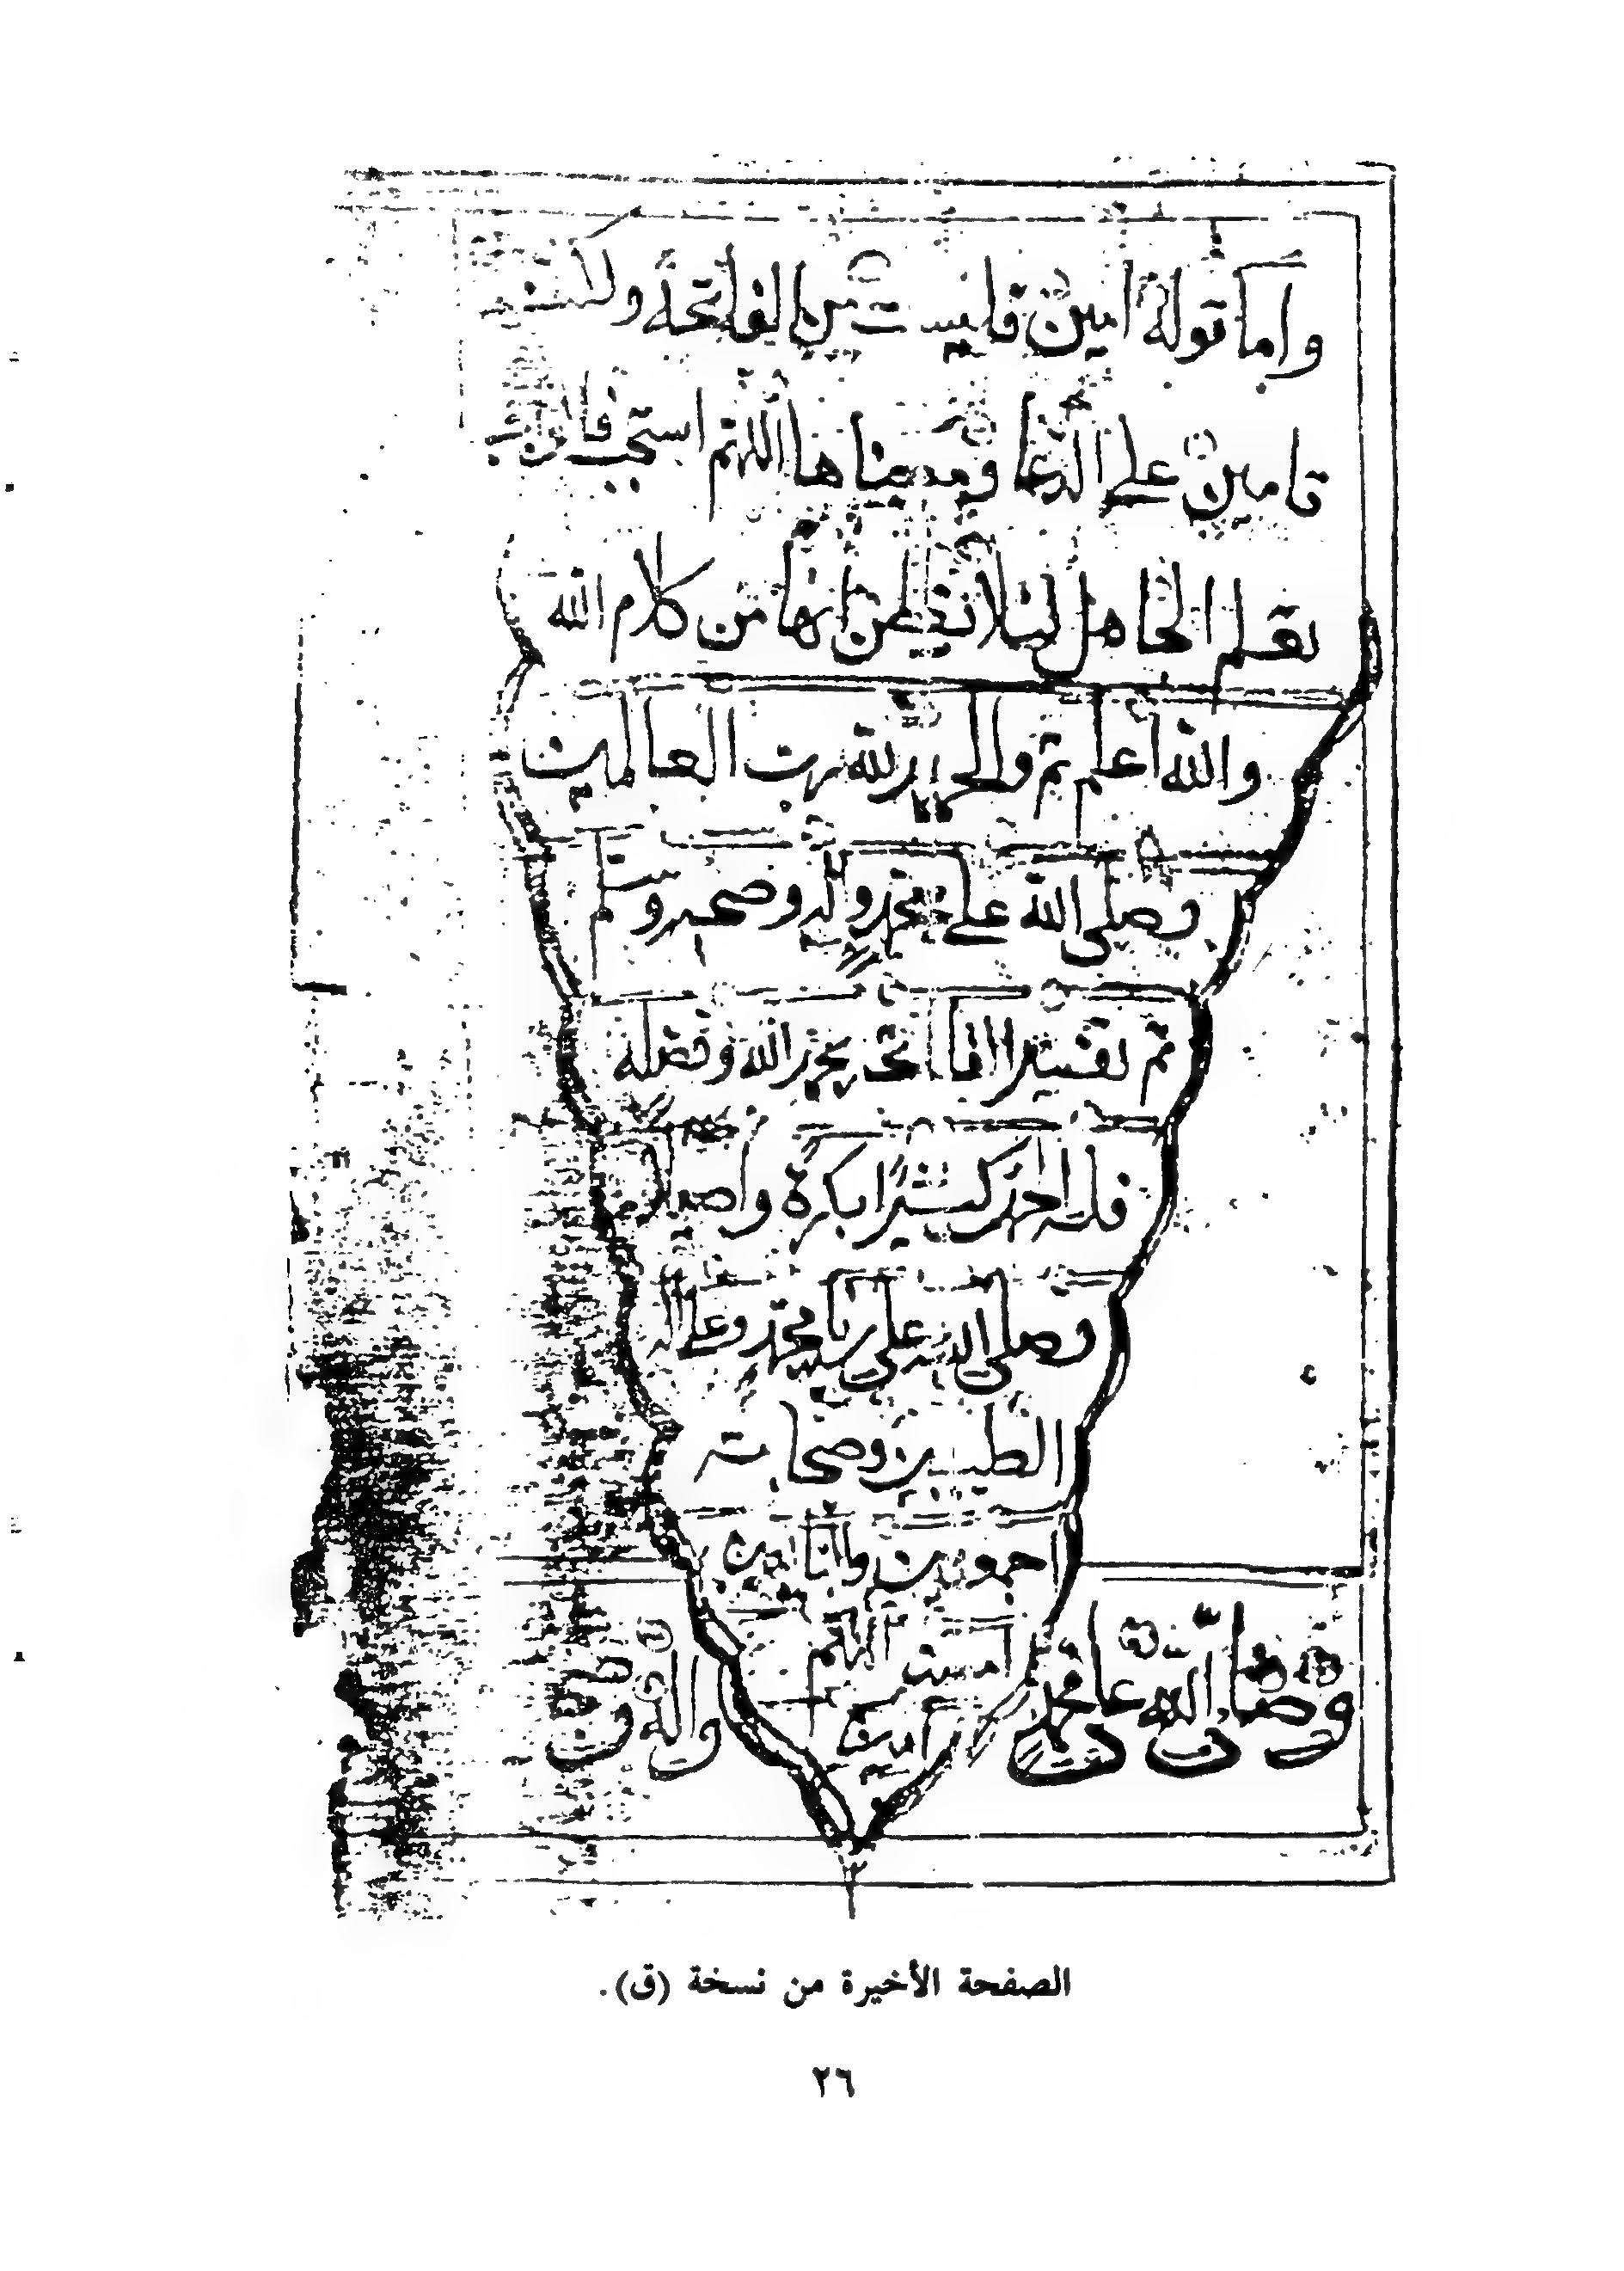 وأما قوله آمين فليست من الفاتحة ولكنه
تامين على الدعا ومعناها اللهم استجب
يعلم الجاهل ليلا يظن انها من كلام الله
والله أعلم تم والحمد لله رب العالمين
وصلى الله على محمد واله وصحبه وسلم
تم تفسير الفاتحة بحمد الله وفضله
فله الحمد كثيرًا بكرة واصيلا
وصلى الله على سيدنا محمد وعلى اله
الطيبين وصحابته
اجمعين والتابعين
امين اللهم
امين
وصلى الله على محمد واله
الصفحة الأخيرة من نسخة (ق).
٢٦